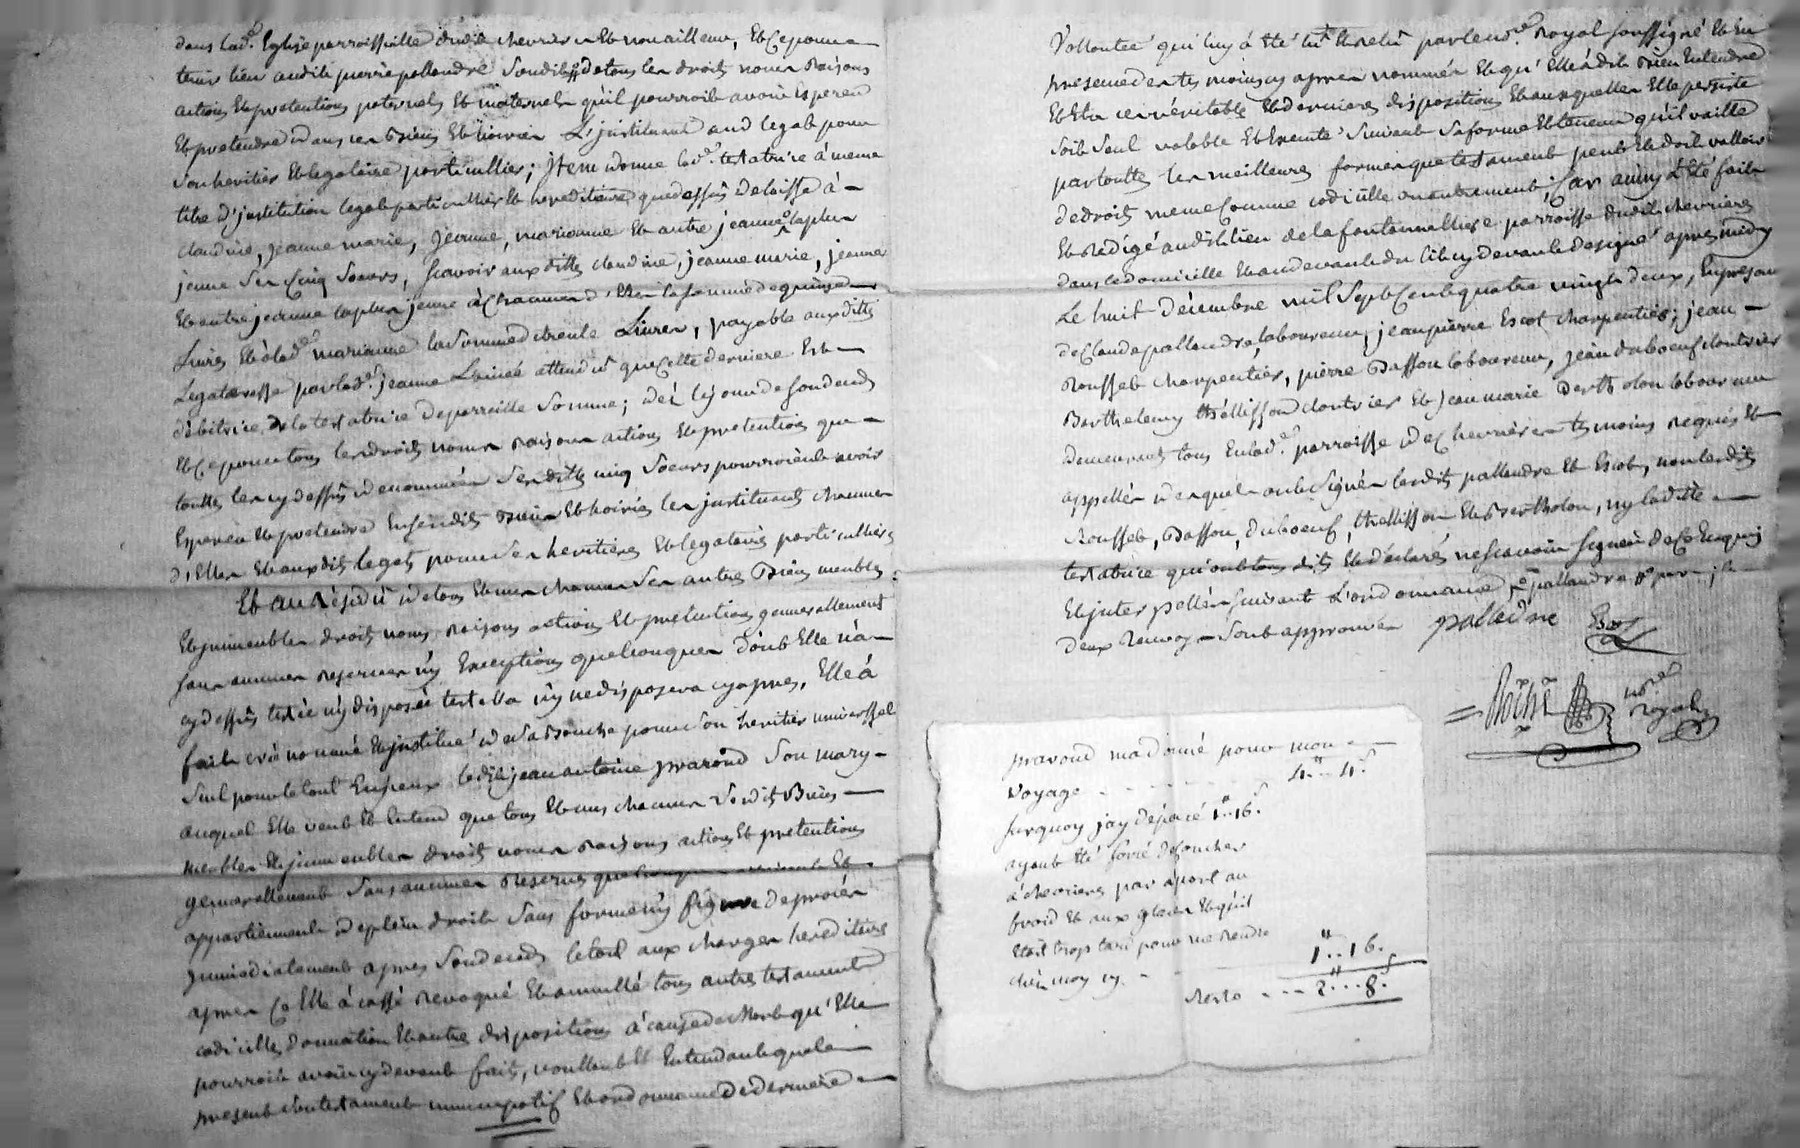 dans lad.e Eglise parroissialle dudit chevrieres Et nonailleurs, Et Ce pour
tenir lieu audit pierre pallandre Sondit de tous les droits noms Raisons
actions Et pretentions paternels Et maternels qu'il pourroit avoir Esperer
Et pretendre dans ses Biens Et hoiries L'jnstituant aud legat pour
Son heritier Et legataire particullier; jtem donne lad.e testatrice à meme
titre d'jnstitution legat particullier Et hereditaire que dessus delaisse à
claudine, jeanne marie, jeanne, marianne Et autre jeanne la plus
jeune Ses Cinq Soeurs, scavoir aux dittes claudine, jeanne marie, jeanne
Et autre jeanne la plus jeune à Chacune d'Elles la somme de quinze
Livres Et à lad.e marianne la Somme de trente Livres, payable auxdittes
Legataresse par lad.e jeanne L'ainée attendu que Cette derniere Est
débitrice de la testatrice de parreille Somme; dès le jour de son deceds
Et Ce pour tous les droits noms raisons actions Et pretentions que
touttes les cy dessus denommées Ses dittes cinq Soeurs pourroient avoir
Esperer Et pretendre En Ses dits Biens Et hoiries les jnstituants chacune
d'Elles Et auxdits legats pour Ses heritieres Et legataires particullieres
Et au Résidu de tous Et uns chacuns Ses autres Biens meubles
Et jmmeubles droits noms raisons actions Et pretentions generallement
sans aucunes reserves ny Exceptions quelconques dont Elle n'a
cy dessus testé ny disposé testera ny ne disposera cy apres, Elle à
fait créé nommé Et jnstitué de Sa Bouche pour Son heritier universsel
Seul pour le tout Ledit jean antoine pravond Son mary
auquel Elle veut Et Entend que tous Et uns chacuns Sesdits Biens
meubles Et jmmeubles droits noms Raisons actions Et pretentions
generallement Sans aucunes Reserves quelconques Et
appartiennent de plein droit Sans forme ny figure de procès
jmmediatement apres Son deceds le tout aux charges hereditaires
apres Ce Elle à cassé revoqué Et annullé tous autres testaments
codicilles donnation Et autres dispositions à cause de Mort qu'Elle
pourroit avoir cy devant fait, voullant Et Entendant que le
present Son testament nunncupatif Et ordonnance de derniere
Vollontée qui luy à Eté lu Et Relu par le no.re Royal soussigné Et En
presence des temoins cy apres nommés Et qu'Elle à dit Bien Entendre
Et Etre Ses véritable Et dernieres dispositions Et auxquelles Elle persiste
soit Seul valable Et Executé Suivant Sa forme Et teneur qu'il vaille
par touttes les meilleures formes que testament peut Et doit valloir
de droit meme Comme codicille ou autrement; Car ainsy à Eté fait
Et Redigé audit lieu de la fontannalhiere parroisse dudit chevrieres
dans le domicille Et au devant du lit cy devant designé apres midy
Le huit Décembre mil Sept Cent quatre vingt deux, En presence
de Claude pallandre, laboureur, jean pierre Escot charpentier; jean
Rousset charpentier, pierre Basson laboureur, jean duboeuf cloutrier
Barthelemy thellisson cloutrier Et jean marie Bertholon laboureur
demeurants tous En lad.e parroisse de chevrieres temoins requis Et
appellés desquels ont Signés lesdits pallandre Et Escot, non lesdits
Rousset, Basson, duboeuf, thellisson Et Bertholon, ny laditte
testatrice qui ont tous dits Et déclarés ne scavoir signer de Ce Enquis
Et jnterpellés suivant L'ordonnance
Deux Renvoys Sont approuvés palladre Escot
no.re Royal
pravond ma donné pour mon
voyage 4.. 4.
surquoy jay dépancé 1.. 16.
ayant Eté forcé de coucher
à chevrieres par aport au
froid Et aux glaces Et quil
Etoit trop tard pour me rendre
chez moy cy. 1.. 16.
Reste 2... 8.